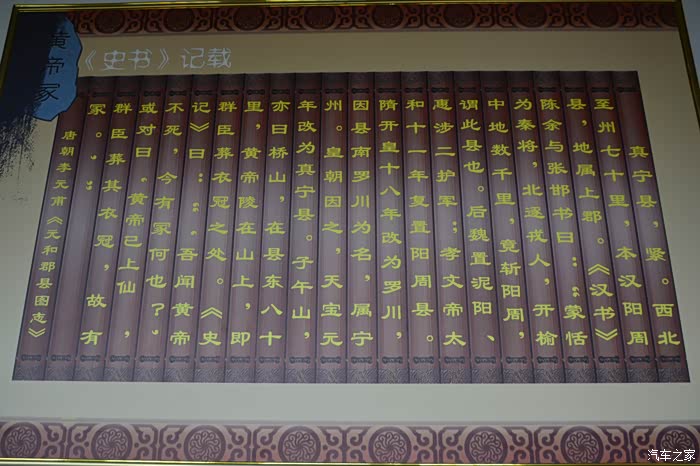 黄帝冢
《史书》记载
真宁县，紧。西北
至州七十里，本汉阳周
县，地属上郡。《汉书》
陈余与张邯书曰：“蒙恬
为秦将，北逐戎人，开榆
中地数千里，竟斩阳周，
谓此县也。后魏置泥阳、
惠涉二护军；孝文帝太
和十一年复置阳周县。
隋开皇十八年改为罗川，
因县南罗川为名，属宁
州。皇朝因之，天宝元
年改为真宁县。子午山，
亦曰桥山，在县东八十
里，黄帝陵在山上，即
群臣葬衣冠之处。《史
记》曰：“吾闻黄帝
不死，今有冢何也？”
或对曰“黄帝已上仙，
群臣葬其衣冠，故有
冢。”
唐朝李元甫《元和郡县图志》
汽车之家